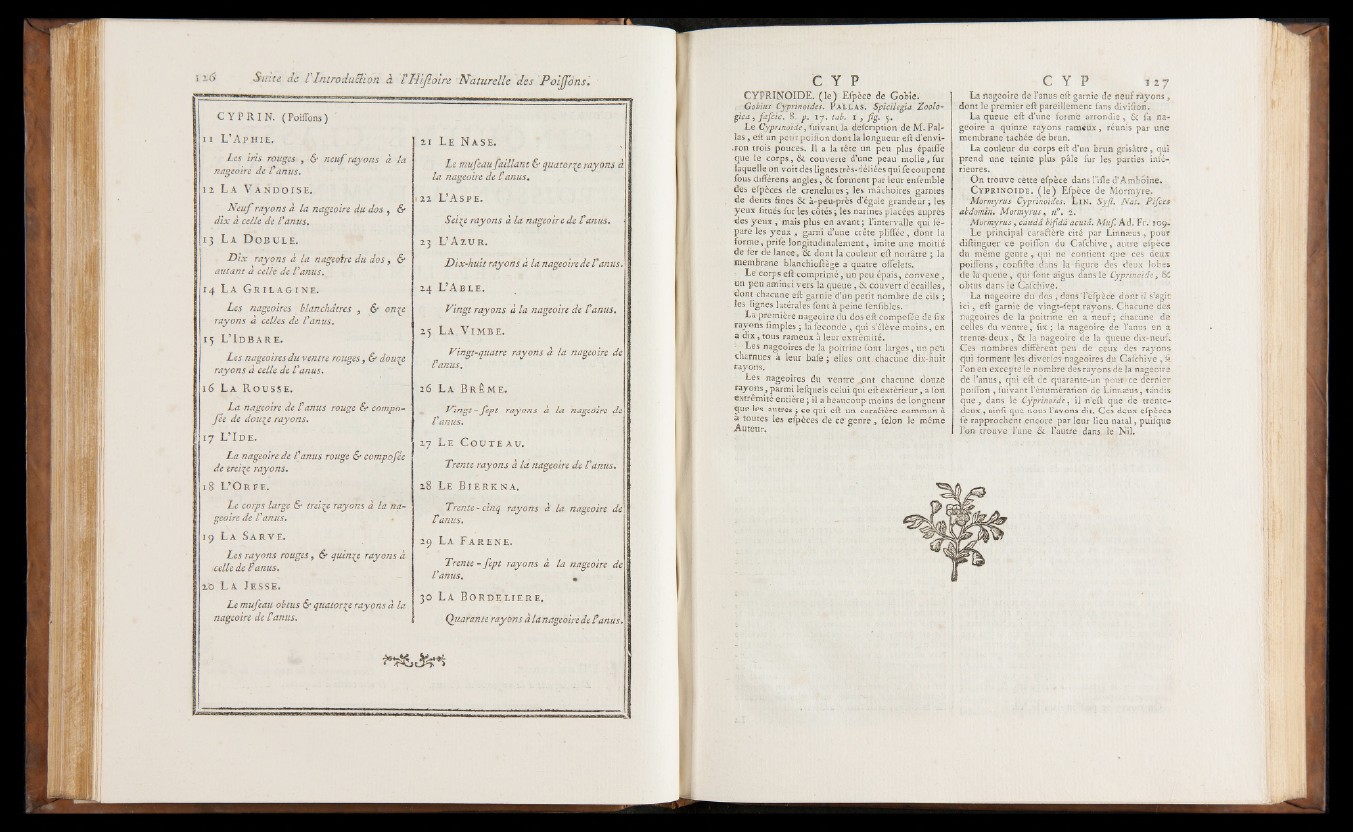 126 Suite de l'Introduction à l'Histoire Naturelle des Poissons.
CYPRIN. (Poissons)
11 L'APHIE.
Les iris rouges, & neuf rayons à la
nageoire de l'anus.
12 LA VANDOISE.
Neuf rayons à la nageoire du dos, &
dix à celle de l'anus.
13 LA DOBULE.
Dix rayons à la nageoire du dos, &
autant à celle de l'anus.
14 LA GRILAGINE.
Les nageoires blanchâtres, & onze
rayons à celles de l'anus.
15 L'IDBARE.
Les nageoires du ventre rouges, & douze
rayons à celle de l'anus.
16 LA ROUSSE.
La nageoire de l'anus rouge & compo-
sée de douze rayons.
17 L'IDE.
La nageoire de l'anus rouge & composée
de treize rayons.
18 L'ORFE.
Le corps large & treize rayons à la na-
geoire de l'anus.
19 LA SARVE.
Les rayons rouges, & quinze rayons à
celle de l'anus.
20 LA JESSE.
Le museau obtus & quatorze rayons à la
nageoire de l'anus.
21 LE NASE.
Le museau saillant & quatorze rayons à
la nageoire de l'anus.
22 L'ASPE.
Seize rayons à la nageoire de l'anus.
23 L'AZUR.
Dix-huit rayons à la nageoire de l'anus.
24 L'ABLE.
Vingt rayons à la nageoire de l'anus.
25 LA VIMBE.
Vingt-quatre rayons à la nageoire de
l'anus.
26 LA BRÊME.
Vingt-sept rayons à la nageoire de
l'anus.
27 LE COUTEAU.
Trente rayons à la nageoire de l'anus.
28 LE BIERKNA.
Trente-cinq rayons à la nageoire de
l'anus.
29 LA FARENE.
Trente-sept rayons à la nageoire de
l'anus.
30 LA BORDELIERE.
Quarante rayons à la nageoire de l'anus.
CYP
CYPRINOIDE. (le) Espèce de Gobie.
Gobius Cyprinoides. PALLAS. Spicilegia Zoolo-
gica, fascic. 8. p. 17. tab. 1, fig. 5.
Le Cyprinoide, suivant la description de M. Pal-
las, est un petit poisson dont la longueur est d'envi-
ron trois pouces. Il a la tête un peu plus épaisse
que le corps, & couverte d'une peau molle, sur
laquelle on voit des lignes très-déliées qui se coupent
sous différens angles, & forment par leur ensemble
des espèces de crenelures ; les mâchoires garnies
de dents fines & à-peu-près d'égale grandeur ; les
yeux situés sur les côtés ; les narines placées auprès
des yeux, mais plus en avant ; l'intervalle qui sé-
pare les yeux, garni d'une crête plissée, dont la
forme, prise longitudinalement, imite une moitié
de fer de lance, & dont la couleur est noirâtre ; la
membrane blanchiostège a quatre osselets.
Le corps est comprimé, un peu épais, convexe,
un peu aminci vers la queue, & couvert d'écailles,
dont chacune est garnie d'un petit nombre de cils ;
les lignes latérales sont à peine sensibles.
La première nageoire du dos est composée de six
rayons simples ; la seconde, qui s'élève moins, en
a dix, tous rameux à leur extrémité.
Les nageoires de la poitrine sont larges, un peu
charnues à leur base ; elles ont chacune dix-huit
rayons.
Les nageoires du ventre ont chacune douze
rayons, parmi lesquels celui qui est extérieur, a son
extrémité entière ; il a beaucoup moins de longueur
que les autres ; ce qui est un caractère commun à
à toutes les espèces de ce genre, selon le même
Auteur.
CYP 127
La nageoire de l'anus est garnie de neuf rayons,
dont le premier est pareillement sans division.
La queue est d'une forme arrondie, & sa na-
geoire a quinze rayons rameux, réunis par une
membrane tachée de brun.
La couleur du corps est d'un brun grisâtre, qui
prend une teinte plus pâle sur les parties infé-
rieures.
On trouve cette espèce dans l'isle d'Amboine.
CYPRINOIDE. (le) Espèce de Mormyre.
Mormyrus Cyprinoides. LIN. Syst. Nat. Pisces
abdomin. Mormyrus, n°. 2.
Mormyrus, caudâ bifidâ acutâ. Mus. Ad. Fr. 109.
Le principal caractère cité par Linnæus, pour
distinguer ce poisson du Caschive, autre espèce
du même genre, qui ne contient que ces deux
poissons, consiste dans la figure des deux lobes
de la queue, qui sont aigus dans le Cyprinoide, &
obtus dans le Caschive.
La nageoire du dos, dans l'espèce dont il s'agit
ici, est garnie de vingt-sept rayons. Chacune des
nageoires de la poitrine en a neuf ; chacune de
celles du ventre, six ; la nageoire de l'anus en a
trente-deux, & la nageoire de la queue dix-neuf.
Ces nombres diffèrent peu de ceux des rayons
qui forment les diverses nageoires du Caschive, si
l'on en excepte le nombre des rayons de la nageoire
de l'anus, qui est de quarante-un pour ce dernier
poisson, suivant l'énumération de Linnæus, tandis
que, dans le Cyprinoide, il n'est que de trente-
deux, ainsi que nous l'avons dit. Ces deux espèces
se rapprochent encore par leur lieu natal, puisque
l'on trouve l'une & l'autre dans le Nil.